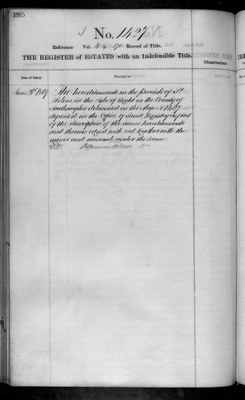 285
No. 1427
Reference Vol. Record of Title.
THE REGISTER of ESTATES with an Indefeasible Title.
Date of Entry. Description
The hereditaments in the parish of St
Helens in the Isle of Wight in the County of
Southampton delineated on the Map No 1427
deposited in the Office of Land Registry as part
of the description of the same hereditaments
and thereon edged with red together with the
mines and minerals under the same